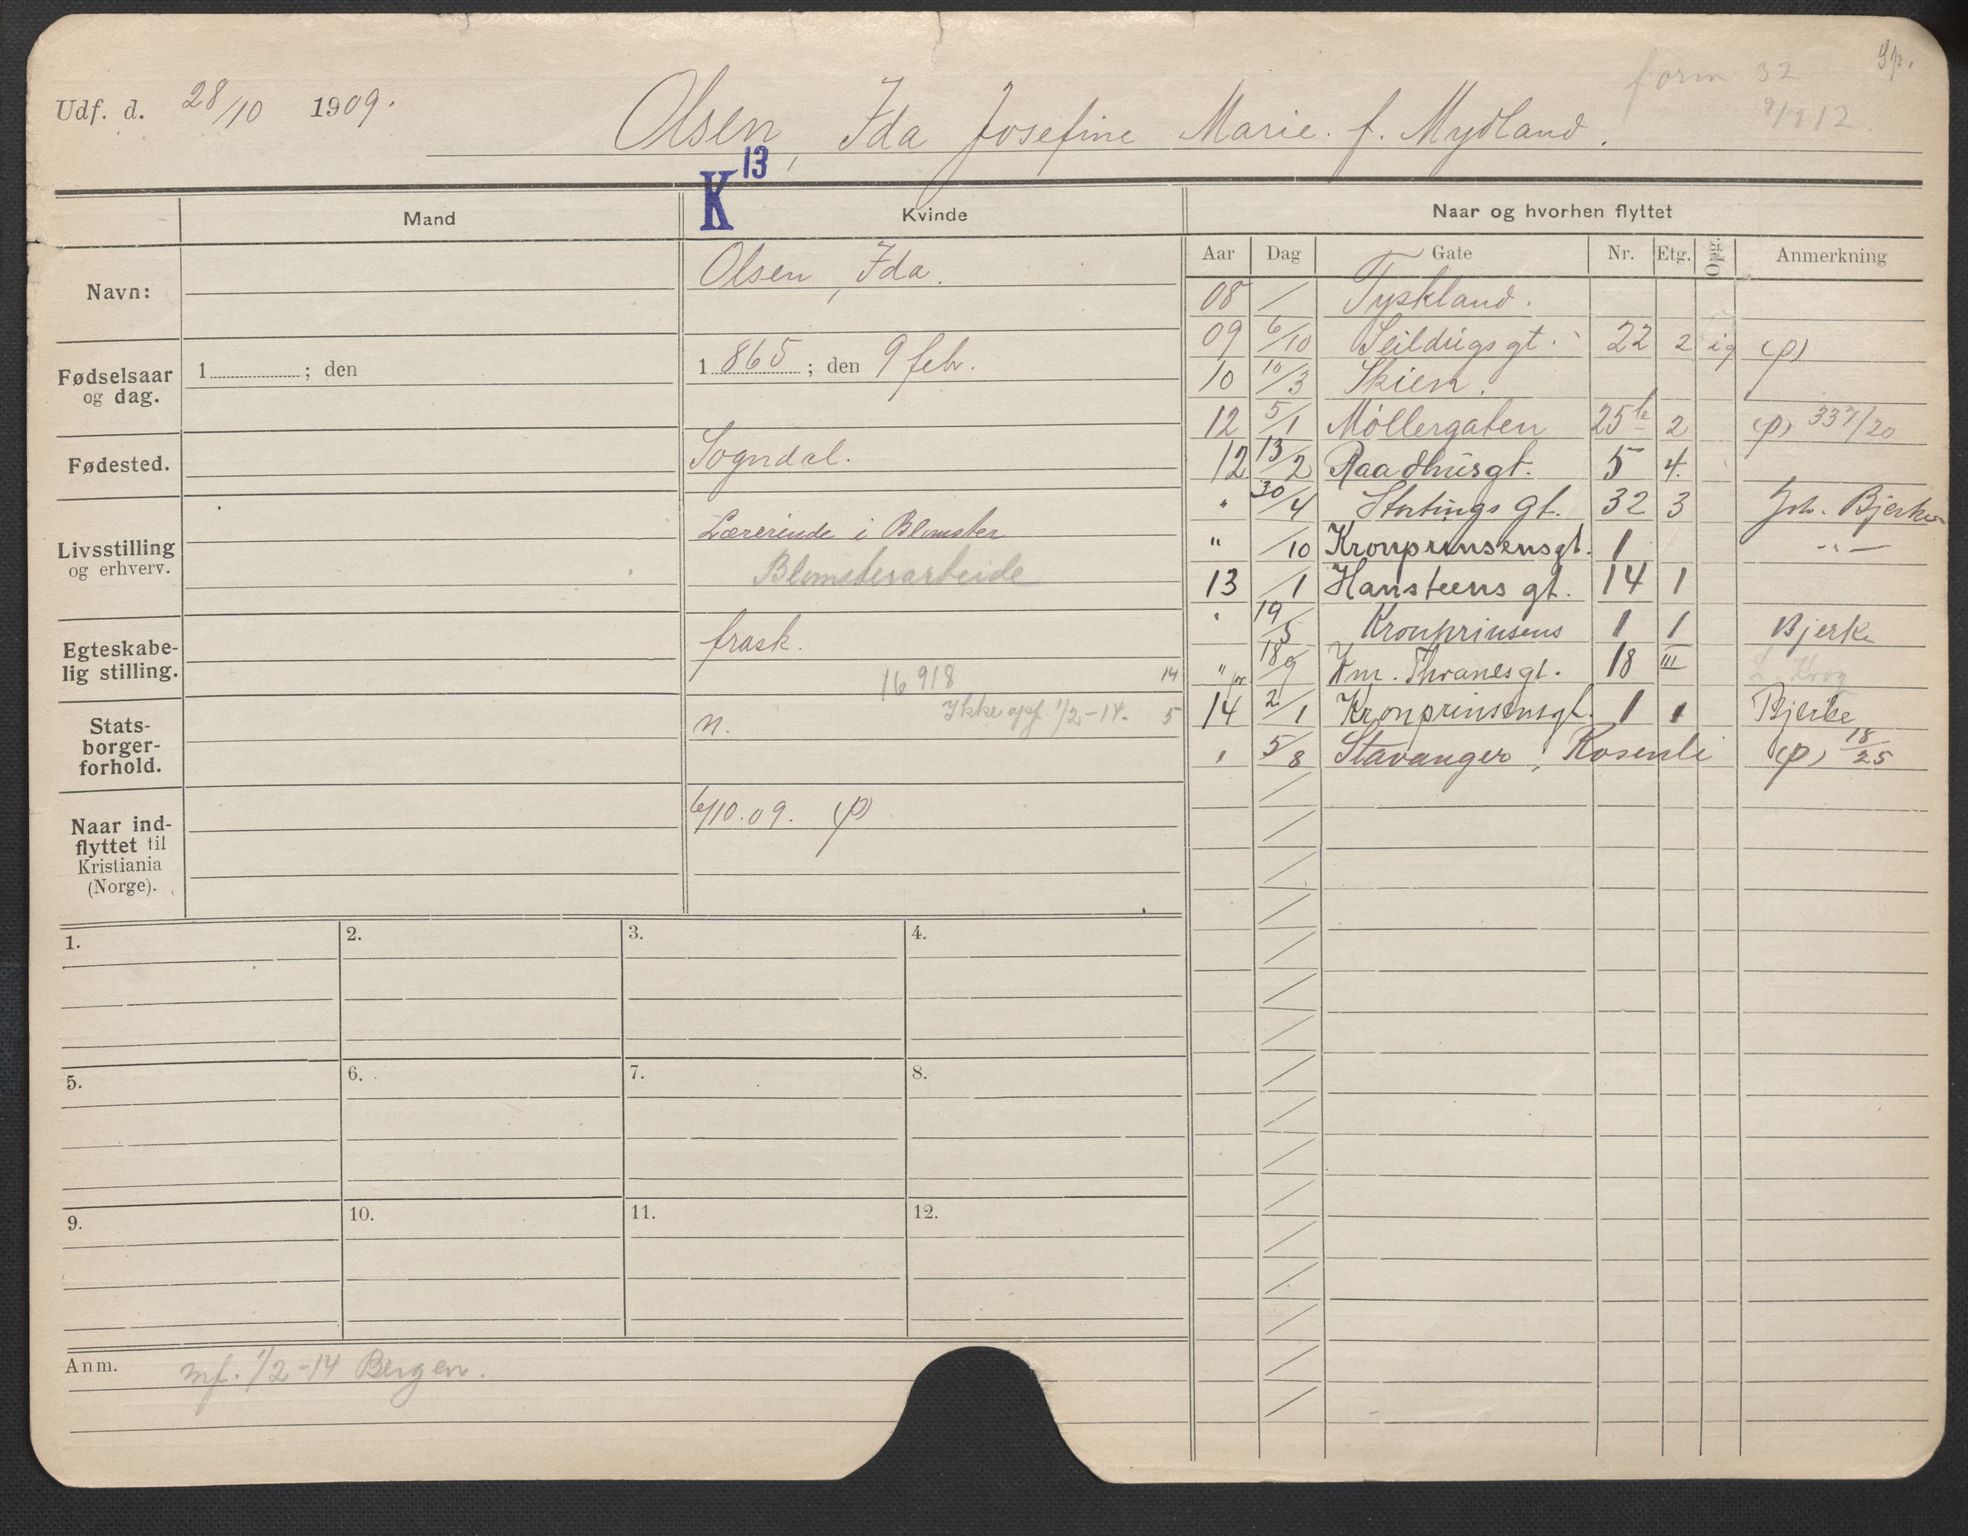 Udf. d. 28/10 1909. Olsen, Ida Josefine Marie. f. Mydland.
form 32
9/7 12
K 13
Mand
Kvinde
Navn:
Olsen, Ida.
Fødselsaar og dag.
1 ; den
1 865 ; den 9 febr.
Fødested.
Sogndal.
Livsstilling og erhverv.
Lærerinde i Blomster
Blomsterarbeide
Egteskabelig stilling.
frask.
16918
14
Ikke opf. 1/2-14. 5
Statsborgerforhold.
n.
Naar indflyttet til Kristiania (Norge).
6/10.09. (p)
Naar og hvorhen flyttet
Aar Dag Gate Nr. Etg. Opg. Anmerkning
08 / Tyskland.
09 6/10 Seildugsgt. 22 2 ig (p)
10 10/3 Skien.
12 5/1 Møllergaten 25 b 2 (p) 337/20
12 13/2 Raadhusgt. 5 4.
" 30/4 Stortings gt. 32 3 Joh. Bjerke
" /10 Kronprinsensgt. 1 -"-
13 /1 Hansteens gt. 14 1
" 19/5 Kronprinsens 1 1 Bjerke
" 18/9 Km. Thranesgt. 18 III Krog
14 2/1 Kronprinsensgt. 1 1 Bjerke
" 5/8 Stavanger, Rosenli (p) 18/25
1.
2.
3.
4.
5.
6.
7.
8.
9.
10.
11.
12.
Anm. mf. 1/2-14 Bergen.